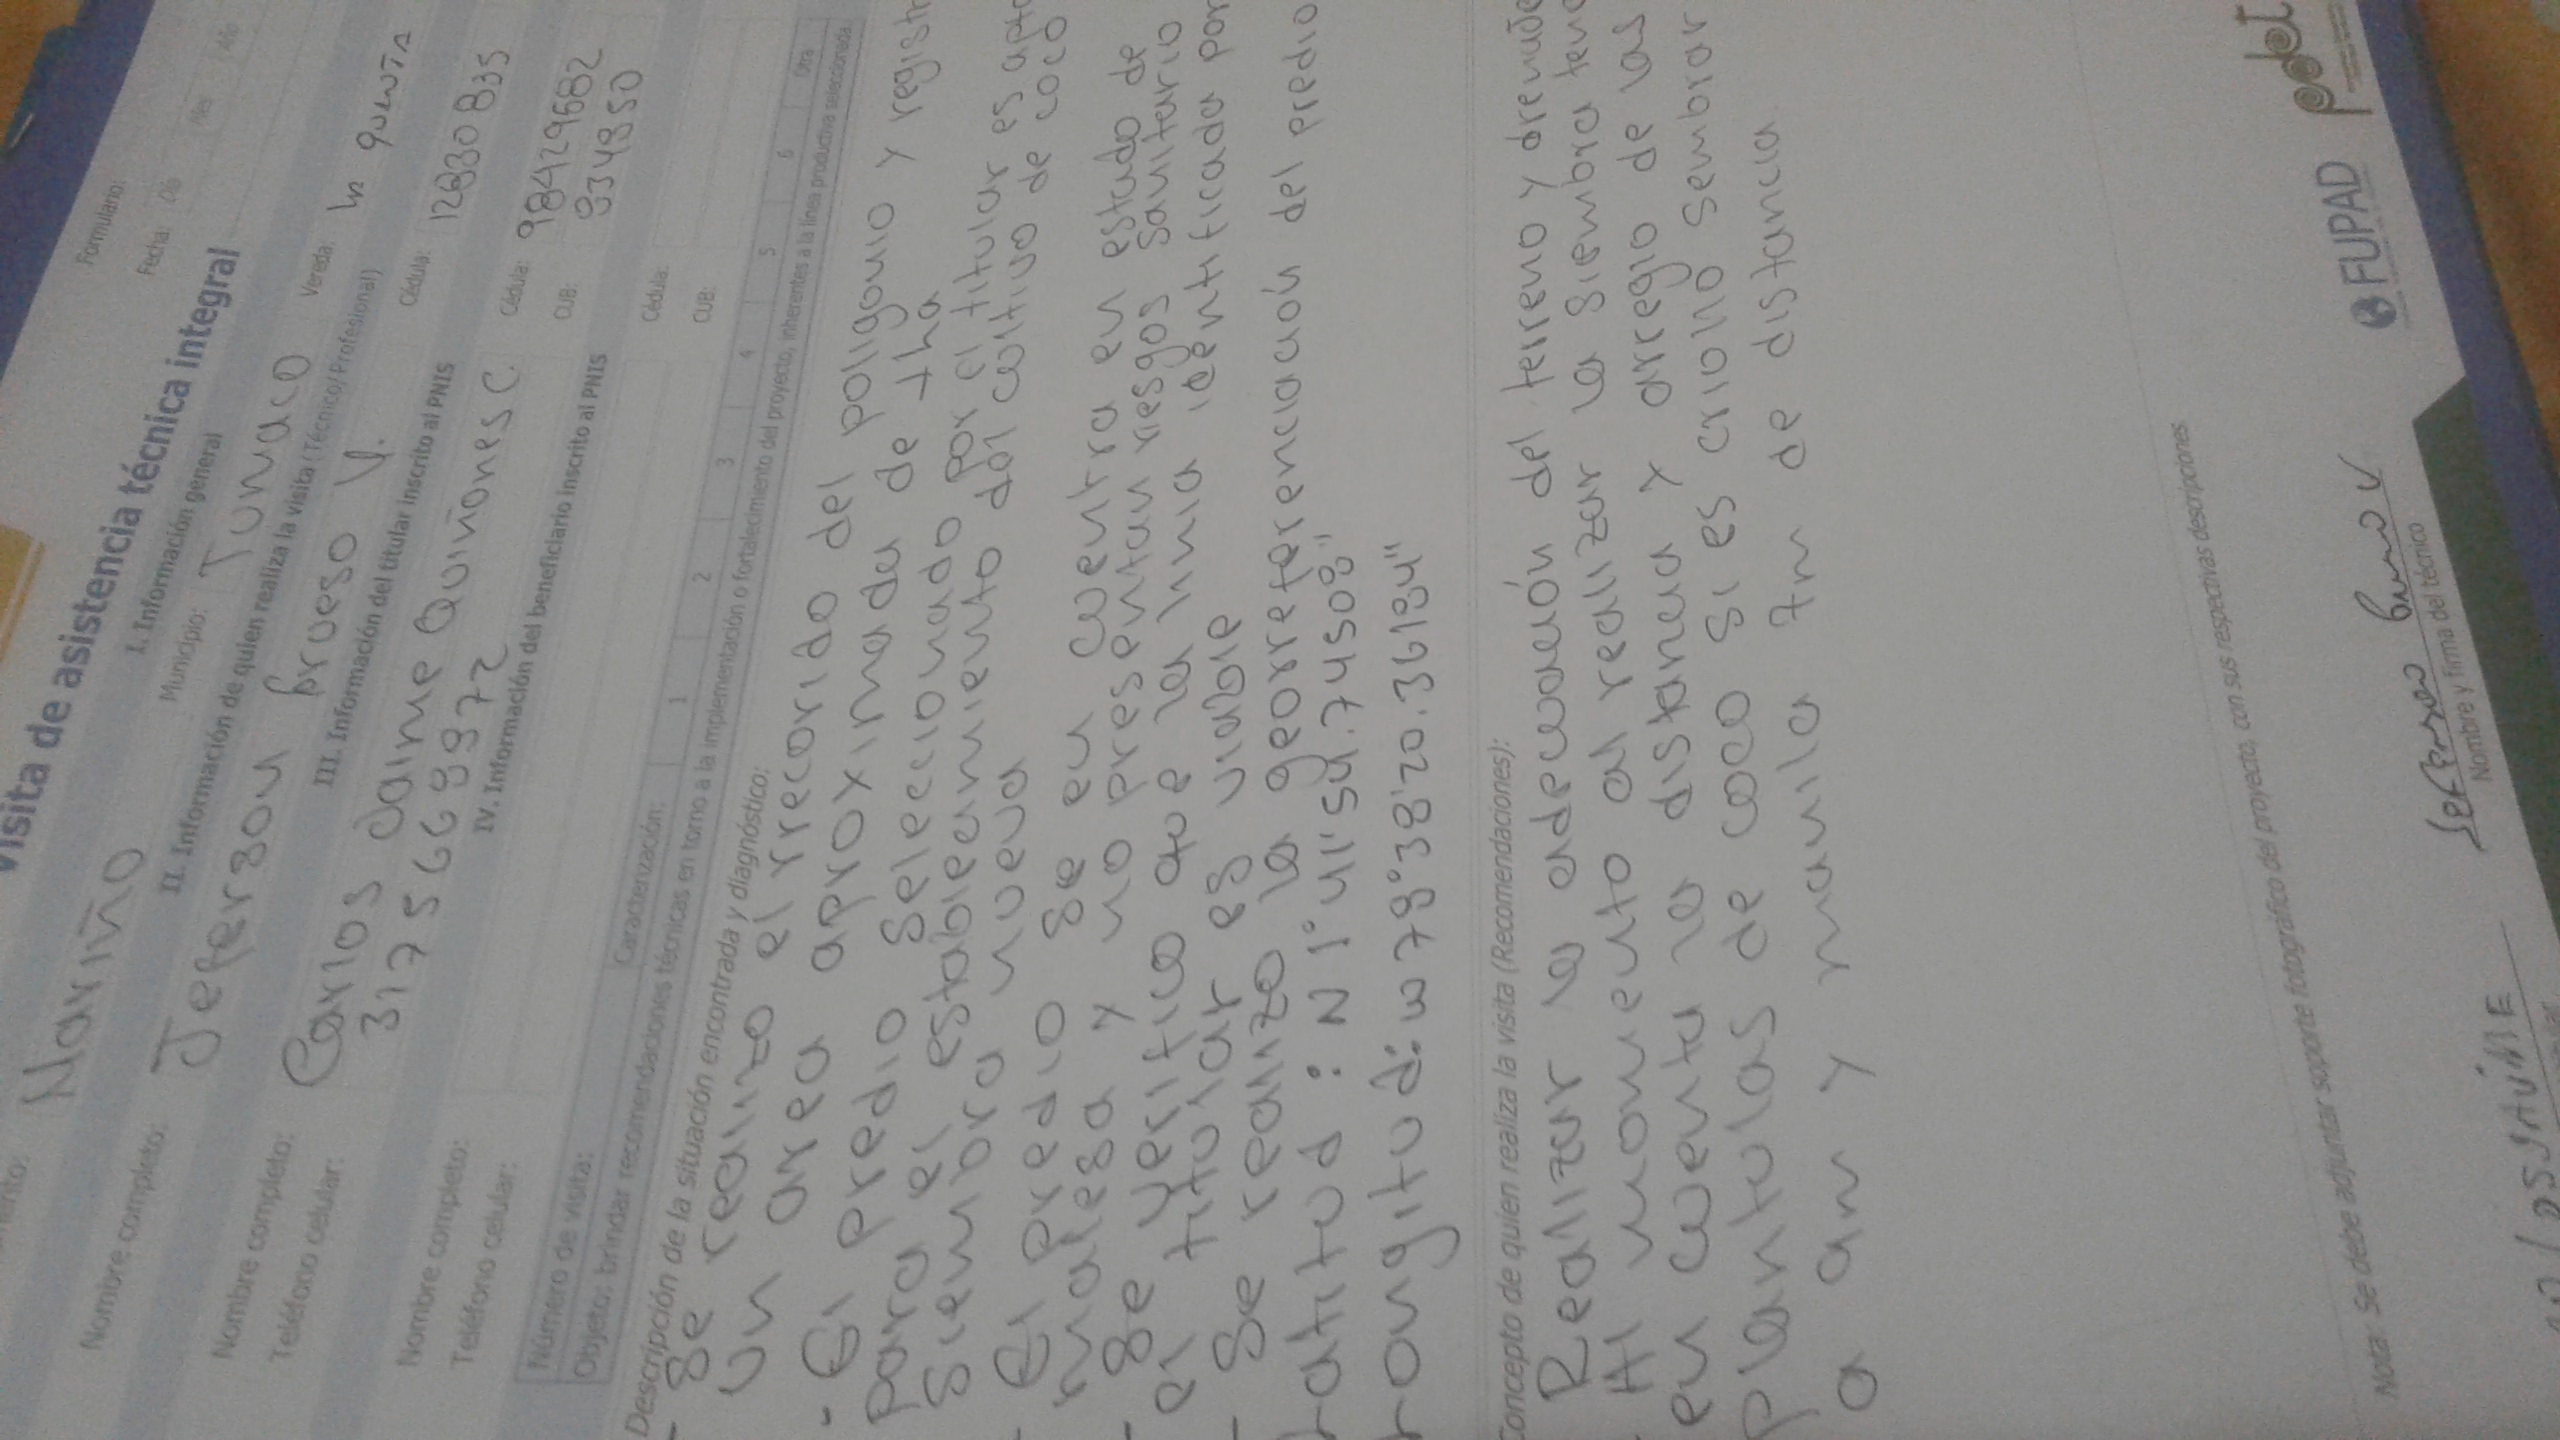 Visita de asistencia técnica integral
Formulario:
Fecha: Día Mes Año
I. Información general
Nariño Municipio: Tumaco Vereda:
II. Información de quien realiza la visita (Técnico/Profesional)
Nombre completo: Jeferson Brueso V. Cédula: 12830835
III. Información del titular inscrito al PNIS
Nombre completo: Carlos Jaime Quiñones C. Cédula: 98429682
Teléfono celular: 3175668972 CUB: 934850
IV. Información del beneficiario inscrito al PNIS
Nombre completo: Cédula:
Teléfono celular: CUB:
Número de visita: Caracterización: 1 2 3 4 5 6 Otra
Objeto: brindar recomendaciones técnicas en torno a la implementación o fortalecimiento del proyecto, inherentes a la línea productiva seleccionada
Descripción de la situación encontrada y diagnóstico:
- Se realizo el rrecorido del poligonio y registr
un area aproximada de 1ha
- El predio seleccionado por el titular es apto
para el establecimiento del cultivo de coco
siembra nueva
- El predio se en cuentra en estado de
malesa y no presentan riesgos sanitario
- Se Verifico que la linia identificada por
el titular es viable
- Se realizo la georreferenciación del predio
Latitud: N 1° 41' 54.74508"
Longitud: w 78° 38' 20.36184"
Concepto de quien realiza la visita (Recomendaciones):
Realizar la adecuación del terreno y drenaje
- Al momento al realizar la siembra ten
en cuenta la distancia y arreglo de las
plantulas de coco si es criollo sembrar
a 9m y manila 7m de distancia
Nota: Se debe adjuntar soporte fotográfico del proyecto, con sus respectivas descripciones
Jeferson Brueso V.
Nombre y firma del técnico
FUPAD
pdet